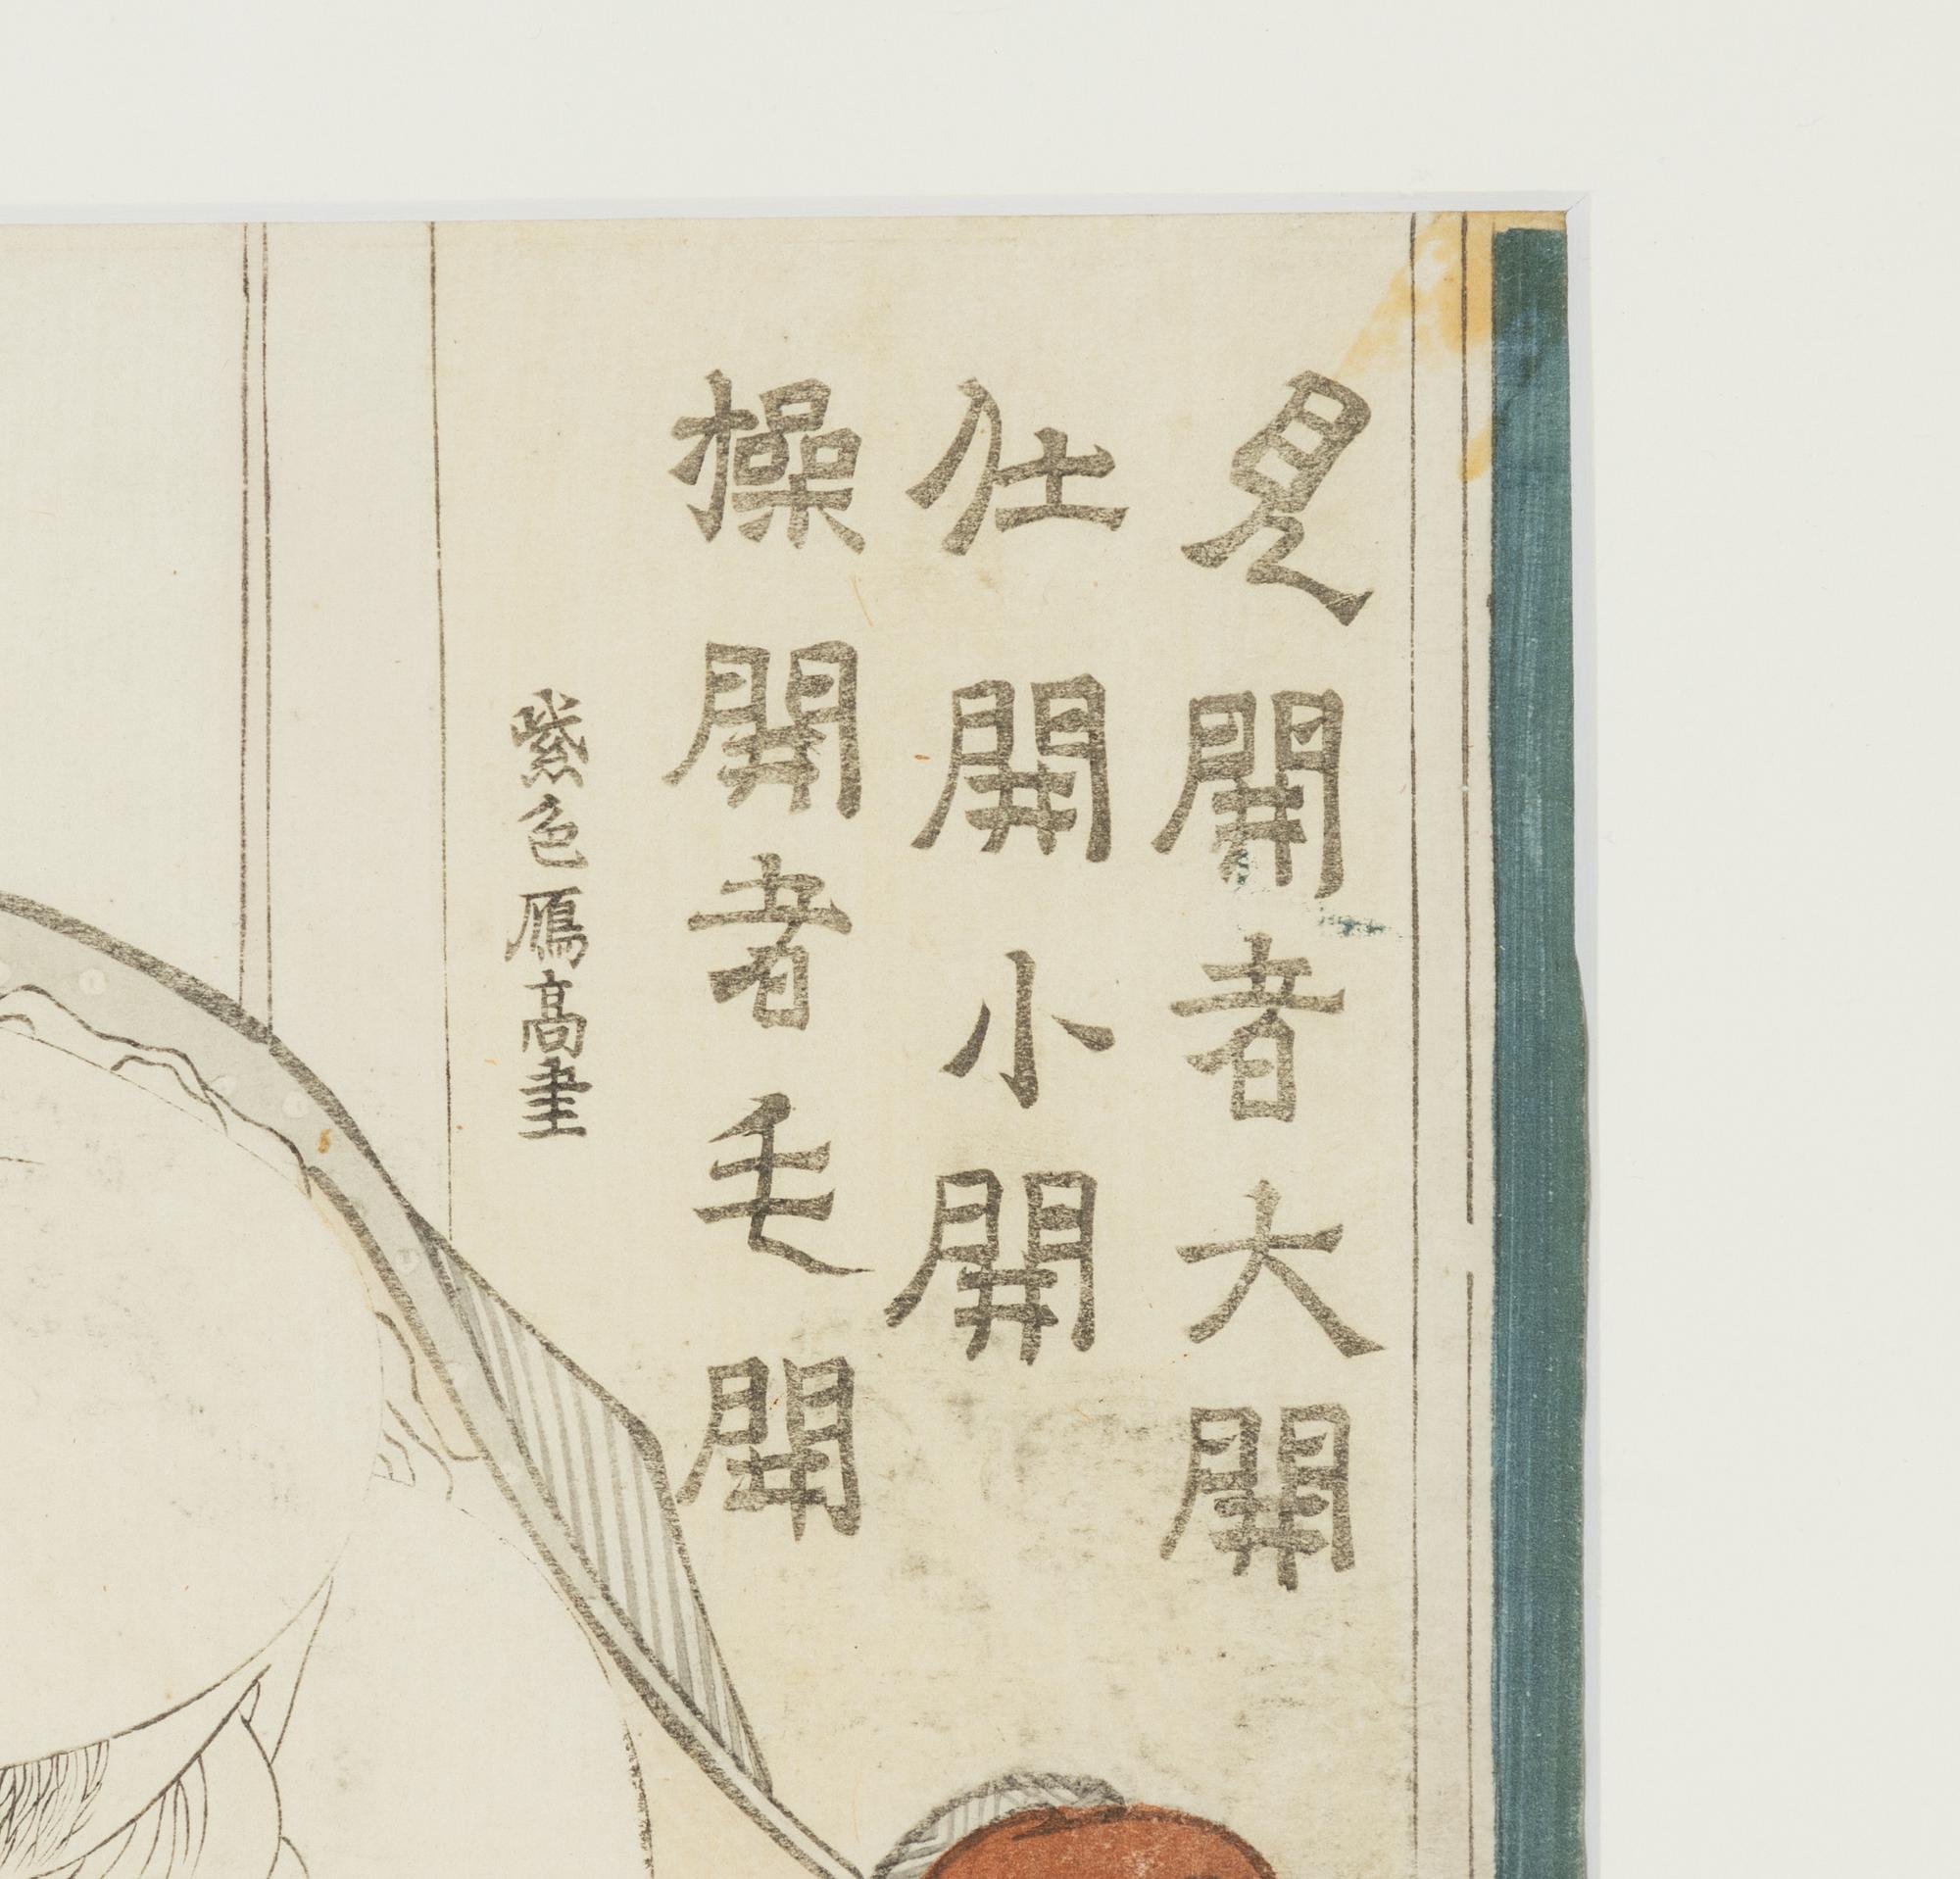 見開者大開
仕開小開
操開者毛開
紫色雁高書